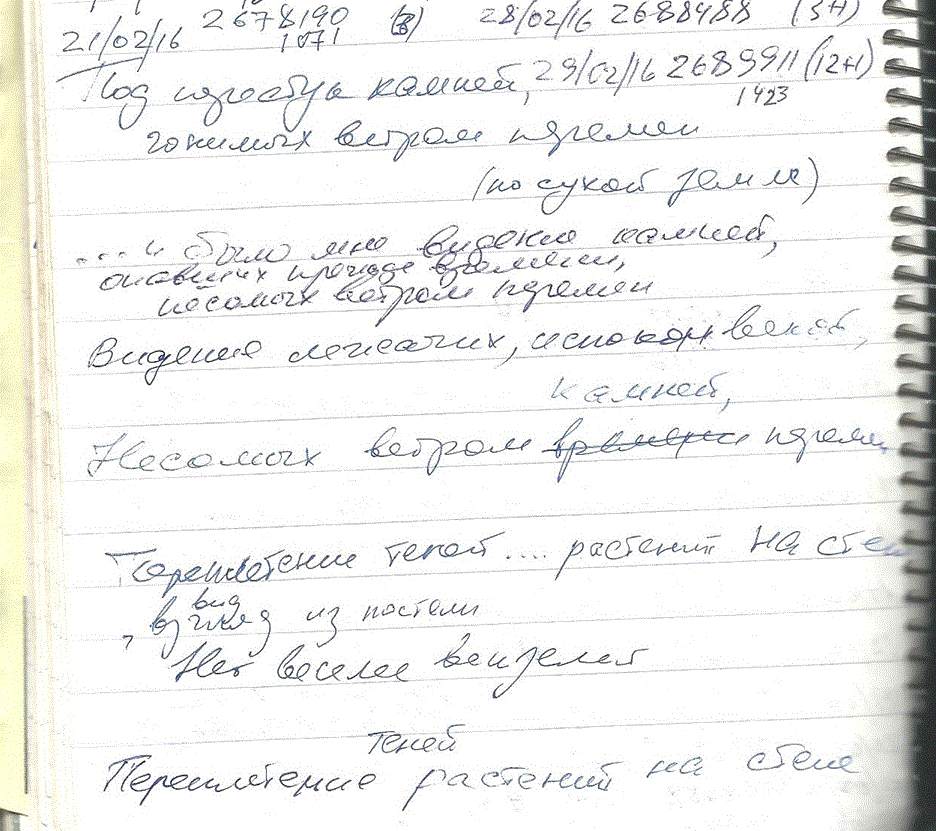 21/02/16 2678190 (8) 28/02/16 2688488 (3+1)
1071
Под
камней, 29/02/16 2689911 (12+1)
1423
гонимых ветром перемен
(по сухой земле)
.... и было мне видение камней,
времени,
несомых ветром перемен
Видение лежачих, испокон веков,
камней,
Несомых ветром времени перемен
Переплетение теней .... растений на стен
вид
? взгляд из постели
Нет веселее вензелей
теней
Переплетение растений на стене